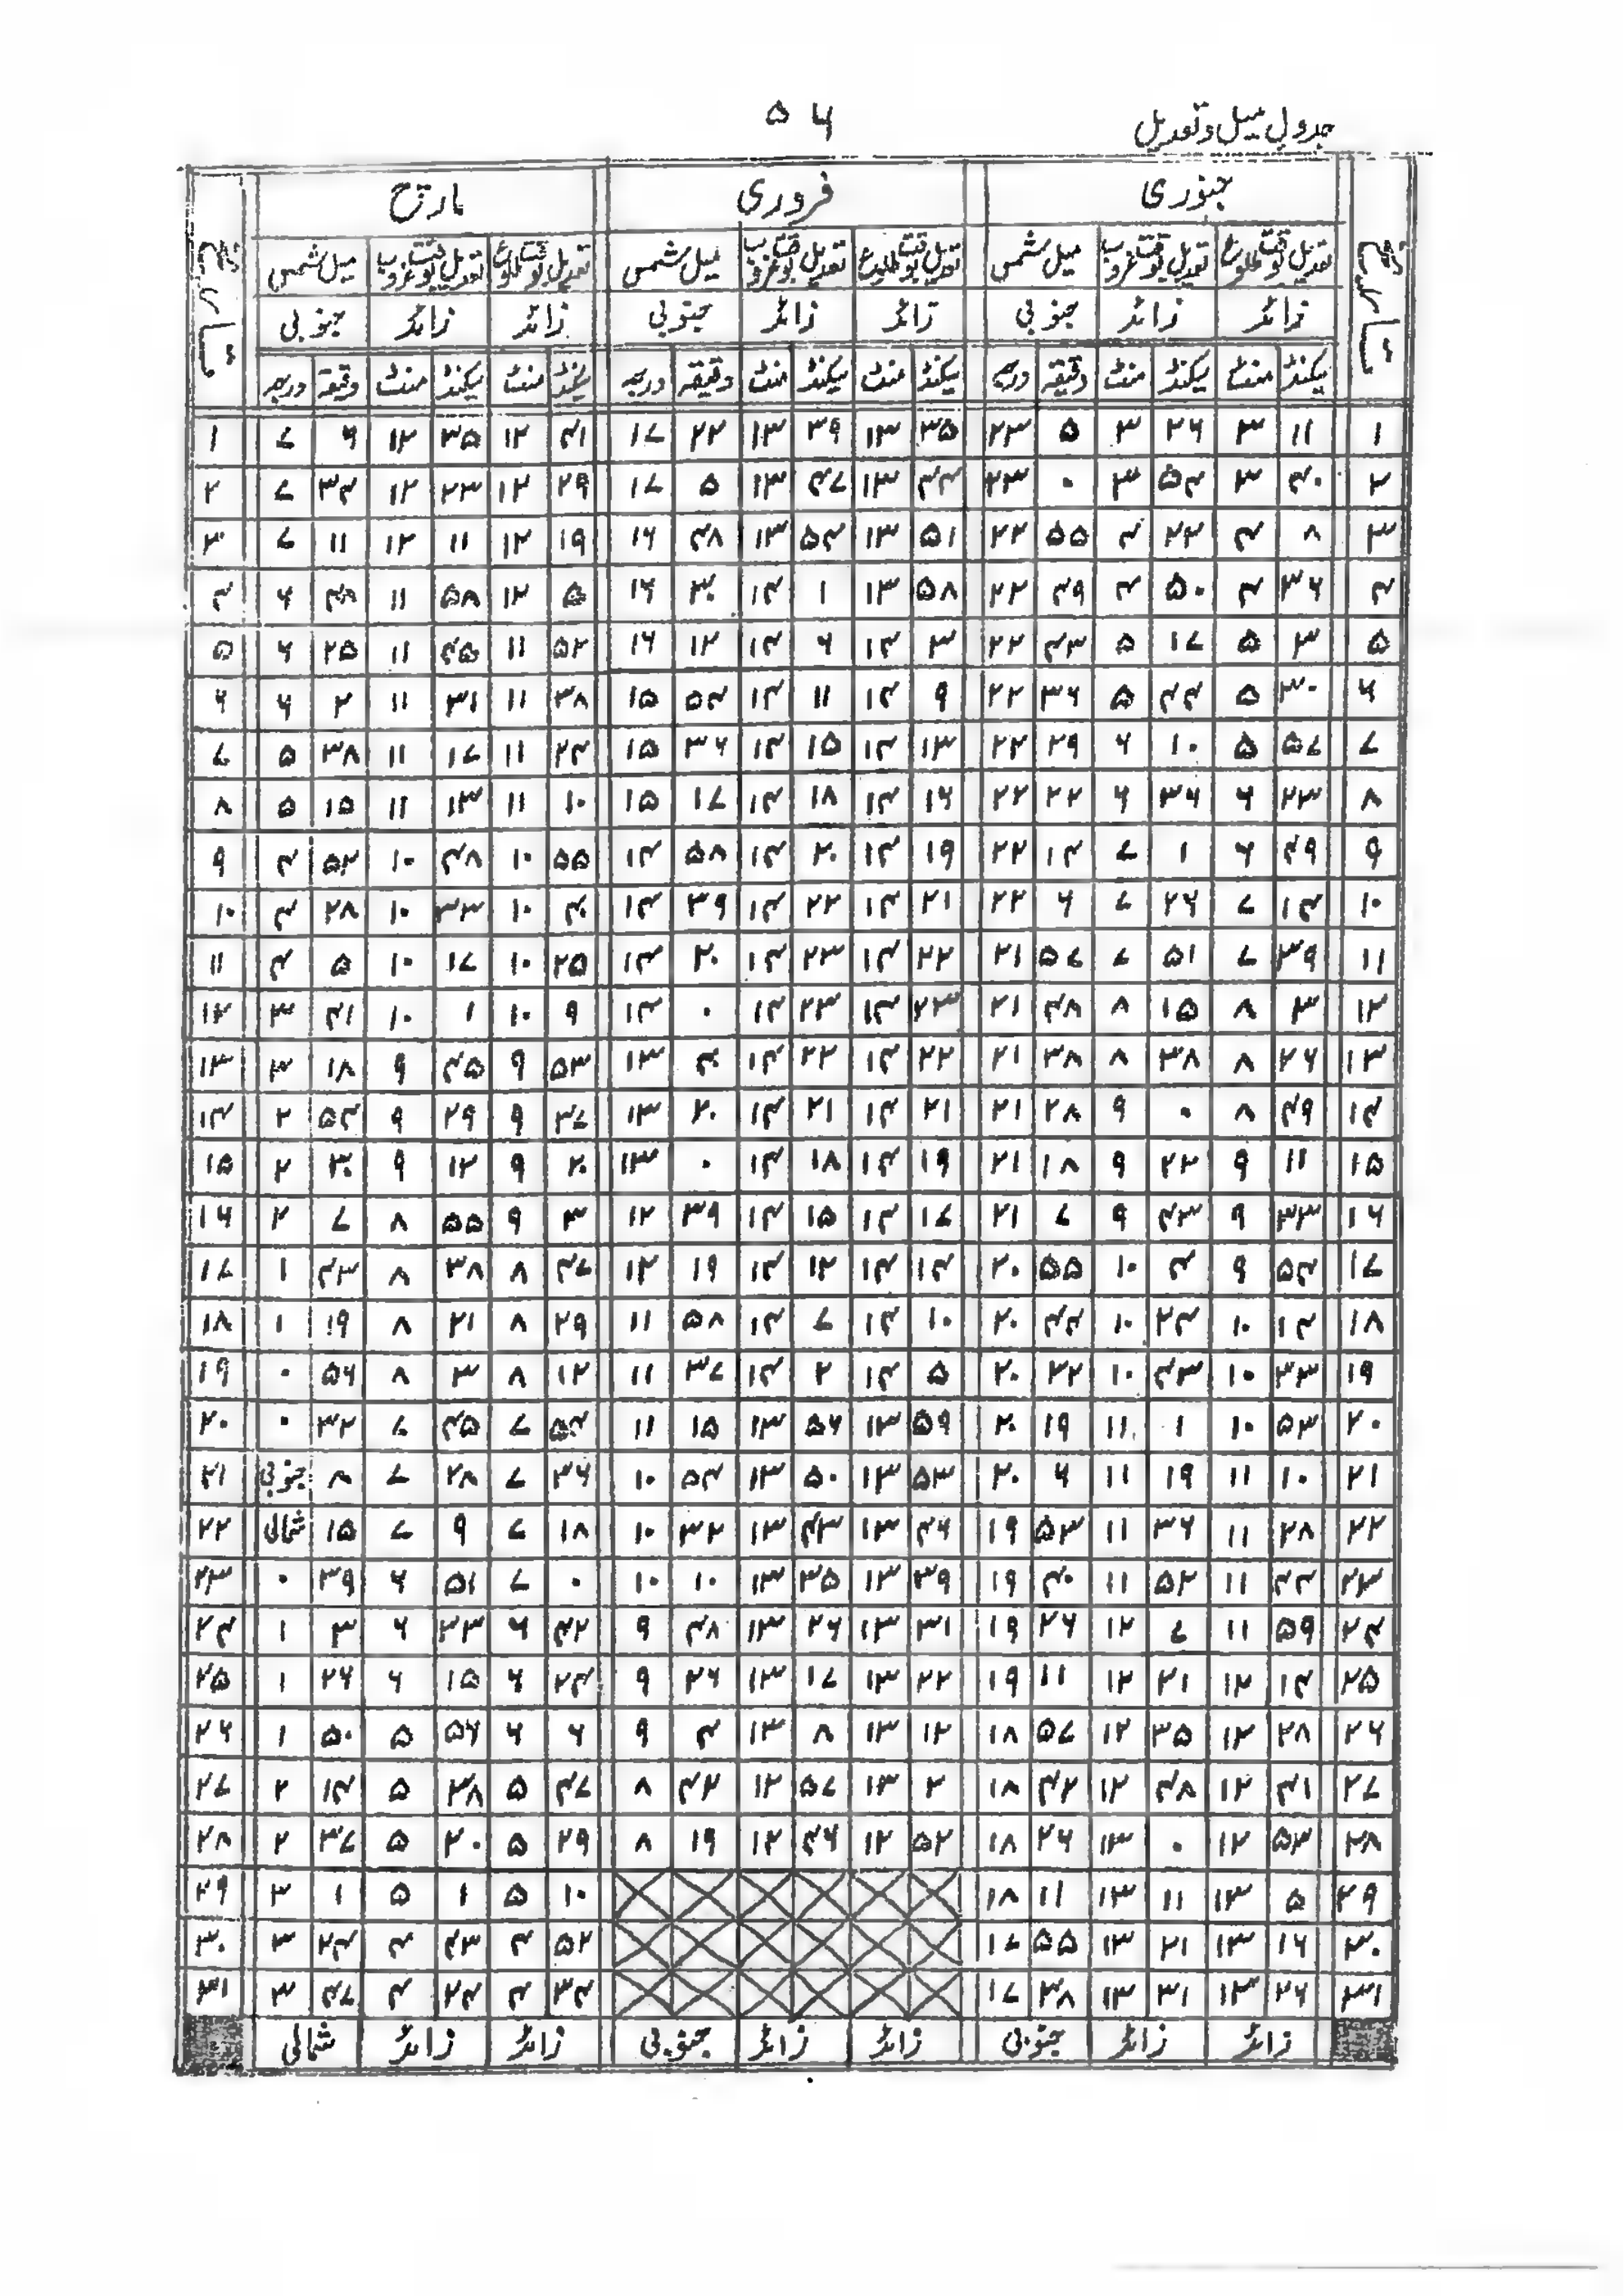 جدول میل و تعدیل ۵۶
تاریخ جنوری فروری مارچ تاریخ
تعدیل بوقت طلوع تعدیل بوقت غروب میل شمس تعدیل بوقت طلوع تعدیل بوقت غروب میل شمس تعدیل بوقت طلوع تعدیل بوقت غروب میل شمس
زائد زائد جنوبی زائد زائد جنوبی زائد زائد جنوبی
سیکنڈ منٹ سیکنڈ منٹ دقیقہ درجہ سیکنڈ منٹ سیکنڈ منٹ دقیقہ درجہ سیکنڈ منٹ سیکنڈ منٹ دقیقہ درجہ
۱ ۱۱ ۳ ۲۶ ۳ ۵ ۲۳ ۳۵ ۱۳ ۳۹ ۱۳ ۲۲ ۱۷ ۴۱ ۱۲ ۳۵ ۱۲ ۶ ۷ ۱
۲ ۴۰ ۳ ۵۴ ۳ ۰ ۲۳ ۴۴ ۱۳ ۴۷ ۱۳ ۵ ۱۷ ۲۹ ۱۲ ۲۳ ۱۲ ۳۴ ۷ ۲
۳ ۸ ۴ ۲۲ ۴ ۵۵ ۲۲ ۵۱ ۱۳ ۵۴ ۱۳ ۴۸ ۱۶ ۱۹ ۱۲ ۱۱ ۱۲ ۱۱ ۷ ۳
۴ ۳۶ ۴ ۵۰ ۴ ۴۹ ۲۲ ۵۸ ۱۳ ۱ ۱۴ ۳۰ ۱۶ ۵ ۱۲ ۵۸ ۱۱ ۴۸ ۶ ۴
۵ ۳ ۵ ۱۷ ۵ ۴۳ ۲۲ ۳ ۱۴ ۶ ۱۴ ۱۲ ۱۶ ۵۲ ۱۱ ۴۵ ۱۱ ۲۵ ۶ ۵
۶ ۳۰ ۵ ۴۴ ۵ ۳۶ ۲۲ ۹ ۱۴ ۱۱ ۱۴ ۵۴ ۱۵ ۳۸ ۱۱ ۳۱ ۱۱ ۲ ۶ ۶
۷ ۵۷ ۵ ۱۰ ۶ ۲۹ ۲۲ ۱۳ ۱۴ ۱۵ ۱۴ ۳۶ ۱۵ ۲۴ ۱۱ ۱۷ ۱۱ ۳۸ ۵ ۷
۸ ۲۳ ۶ ۳۶ ۶ ۲۲ ۲۲ ۱۶ ۱۴ ۱۸ ۱۴ ۱۷ ۱۵ ۱۰ ۱۱ ۱۳ ۱۱ ۱۵ ۵ ۸
۹ ۴۹ ۶ ۱ ۷ ۱۴ ۲۲ ۱۹ ۱۴ ۲۰ ۱۴ ۵۸ ۱۴ ۵۵ ۱۰ ۴۸ ۱۰ ۵۲ ۴ ۹
۱۰ ۱۴ ۷ ۲۶ ۷ ۶ ۲۲ ۲۱ ۱۴ ۲۲ ۱۴ ۳۹ ۱۴ ۴۰ ۱۰ ۳۳ ۱۰ ۲۸ ۴ ۱۰
۱۱ ۳۹ ۷ ۵۱ ۷ ۵۷ ۲۱ ۲۲ ۱۴ ۲۳ ۱۴ ۲۰ ۱۴ ۲۵ ۱۰ ۱۷ ۱۰ ۵ ۴ ۱۱
۱۲ ۳ ۸ ۱۵ ۸ ۴۸ ۲۱ ۲۳ ۱۴ ۲۳ ۱۴ ۰ ۱۴ ۹ ۱۰ ۱ ۱۰ ۴۱ ۳ ۱۲
۱۳ ۲۶ ۸ ۳۸ ۸ ۳۸ ۲۱ ۲۲ ۱۴ ۲۲ ۱۴ ۴۰ ۱۳ ۵۳ ۹ ۴۵ ۹ ۱۸ ۳ ۱۳
۱۴ ۴۹ ۸ ۰ ۹ ۲۸ ۲۱ ۲۱ ۱۴ ۲۱ ۱۴ ۲۰ ۱۳ ۳۷ ۹ ۲۹ ۹ ۵۴ ۲ ۱۴
۱۵ ۱۱ ۹ ۲۲ ۹ ۱۸ ۲۱ ۱۹ ۱۴ ۱۸ ۱۴ ۰ ۱۳ ۲۰ ۹ ۱۲ ۹ ۳۰ ۲ ۱۵
۱۶ ۳۳ ۹ ۴۳ ۹ ۷ ۲۱ ۱۷ ۱۴ ۱۵ ۱۴ ۳۹ ۱۲ ۳ ۹ ۵۵ ۸ ۷ ۲ ۱۶
۱۷ ۵۴ ۹ ۴ ۱۰ ۵۵ ۲۰ ۱۴ ۱۴ ۱۲ ۱۴ ۱۹ ۱۲ ۴۷ ۸ ۳۸ ۸ ۴۳ ۱ ۱۷
۱۸ ۱۴ ۱۰ ۲۴ ۱۰ ۴۴ ۲۰ ۱۰ ۱۴ ۷ ۱۴ ۵۸ ۱۱ ۲۹ ۸ ۲۱ ۸ ۱۹ ۱ ۱۸
۱۹ ۳۳ ۱۰ ۴۳ ۱۰ ۳۲ ۲۰ ۵ ۱۴ ۲ ۱۴ ۳۷ ۱۱ ۱۲ ۸ ۳ ۸ ۵۶ ۰ ۱۹
۲۰ ۵۳ ۱۰ ۱ ۱۱ ۱۹ ۲۰ ۵۹ ۱۳ ۵۶ ۱۳ ۱۵ ۱۱ ۵۴ ۷ ۴۵ ۷ ۳۲ ۰ ۲۰
۲۱ ۱۰ ۱۱ ۱۹ ۱۱ ۶ ۲۰ ۵۳ ۱۳ ۵۰ ۱۳ ۵۴ ۱۰ ۳۶ ۷ ۲۸ ۷ ۸ جنوبی ۲۱
۲۲ ۲۸ ۱۱ ۳۶ ۱۱ ۵۳ ۱۹ ۴۶ ۱۳ ۴۳ ۱۳ ۳۲ ۱۰ ۱۸ ۷ ۹ ۷ ۱۵ شمالی ۲۲
۲۳ ۴۴ ۱۱ ۵۲ ۱۱ ۴۰ ۱۹ ۳۹ ۱۳ ۳۵ ۱۳ ۱۰ ۱۰ ۰ ۷ ۵۱ ۶ ۳۹ ۰ ۲۳
۲۴ ۵۹ ۱۱ ۷ ۱۲ ۲۶ ۱۹ ۳۱ ۱۳ ۲۶ ۱۳ ۴۸ ۹ ۴۲ ۶ ۳۳ ۶ ۳ ۱ ۲۴
۲۵ ۱۴ ۱۲ ۲۱ ۱۲ ۱۱ ۱۹ ۲۲ ۱۳ ۱۷ ۱۳ ۲۶ ۹ ۲۴ ۶ ۱۵ ۶ ۲۶ ۱ ۲۵
۲۶ ۲۸ ۱۲ ۳۵ ۱۲ ۵۷ ۱۸ ۱۲ ۱۳ ۸ ۱۳ ۴ ۹ ۶ ۶ ۵۶ ۵ ۵۰ ۱ ۲۶
۲۷ ۴۱ ۱۲ ۴۸ ۱۲ ۴۲ ۱۸ ۲ ۱۳ ۵۷ ۱۲ ۴۲ ۸ ۴۷ ۵ ۳۸ ۵ ۱۴ ۲ ۲۷
۲۸ ۵۳ ۱۲ ۰ ۱۳ ۲۶ ۱۸ ۵۲ ۱۲ ۴۶ ۱۲ ۱۹ ۸ ۲۹ ۵ ۲۰ ۵ ۳۷ ۲ ۲۸
۲۹ ۵ ۱۳ ۱۱ ۱۳ ۱۱ ۱۸ ۱۰ ۵ ۱ ۵ ۱ ۳ ۲۹
۳۰ ۱۶ ۱۳ ۲۱ ۱۳ ۵۵ ۱۷ ۵۲ ۴ ۴۳ ۴ ۲۴ ۳ ۳۰
۳۱ ۲۶ ۱۳ ۳۱ ۱۳ ۳۸ ۱۷ ۳۴ ۴ ۲۴ ۴ ۴۷ ۳ ۳۱
زائد زائد جنوبی زائد زائد جنوبی زائد زائد شمالی